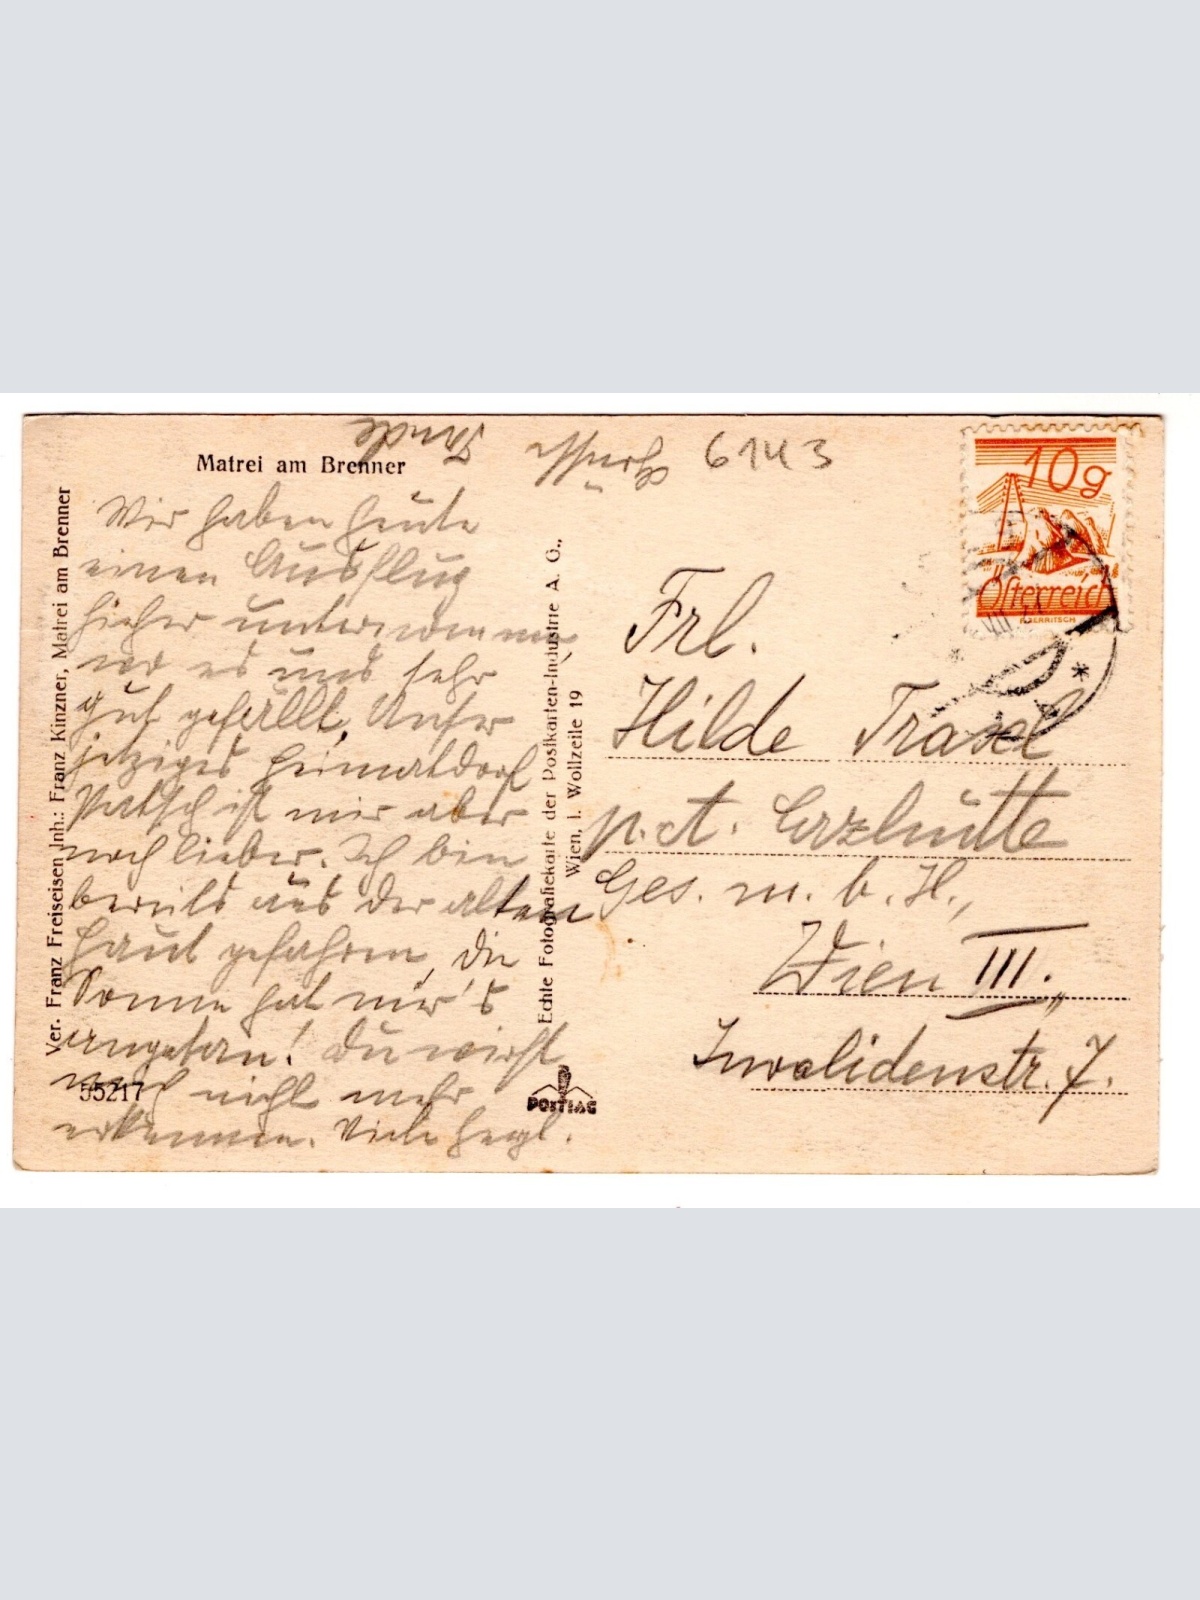 Matrei am Brenner
6143
Wir haben heute
einen Ausflug
hieher unternommen
wo es uns sehr
gut gefällt. Unser
jetziges Heimatdorf
Patsch ist mir aber
noch lieber. Ich bin
bereits aus der alten
Haut gefahren, die
Sonne hat mir's
angetan! Du wirst
mich nicht mehr
erkennen. Viele herzl.
Grüße
55217
Ver. Franz Freiseisen Jnh.: Franz Kinzner, Matrei am Brenner
Echte Fotografiekarte der Postkarten-Industrie A. G.,
Wien, I. Wollzeile 19
POSTIAG
10g
Österreich
Frl.
Hilde Traxel
p. A. Erzhütte
Ges. m. b. H.,
Wien III.,
Invalidenstr. 7.